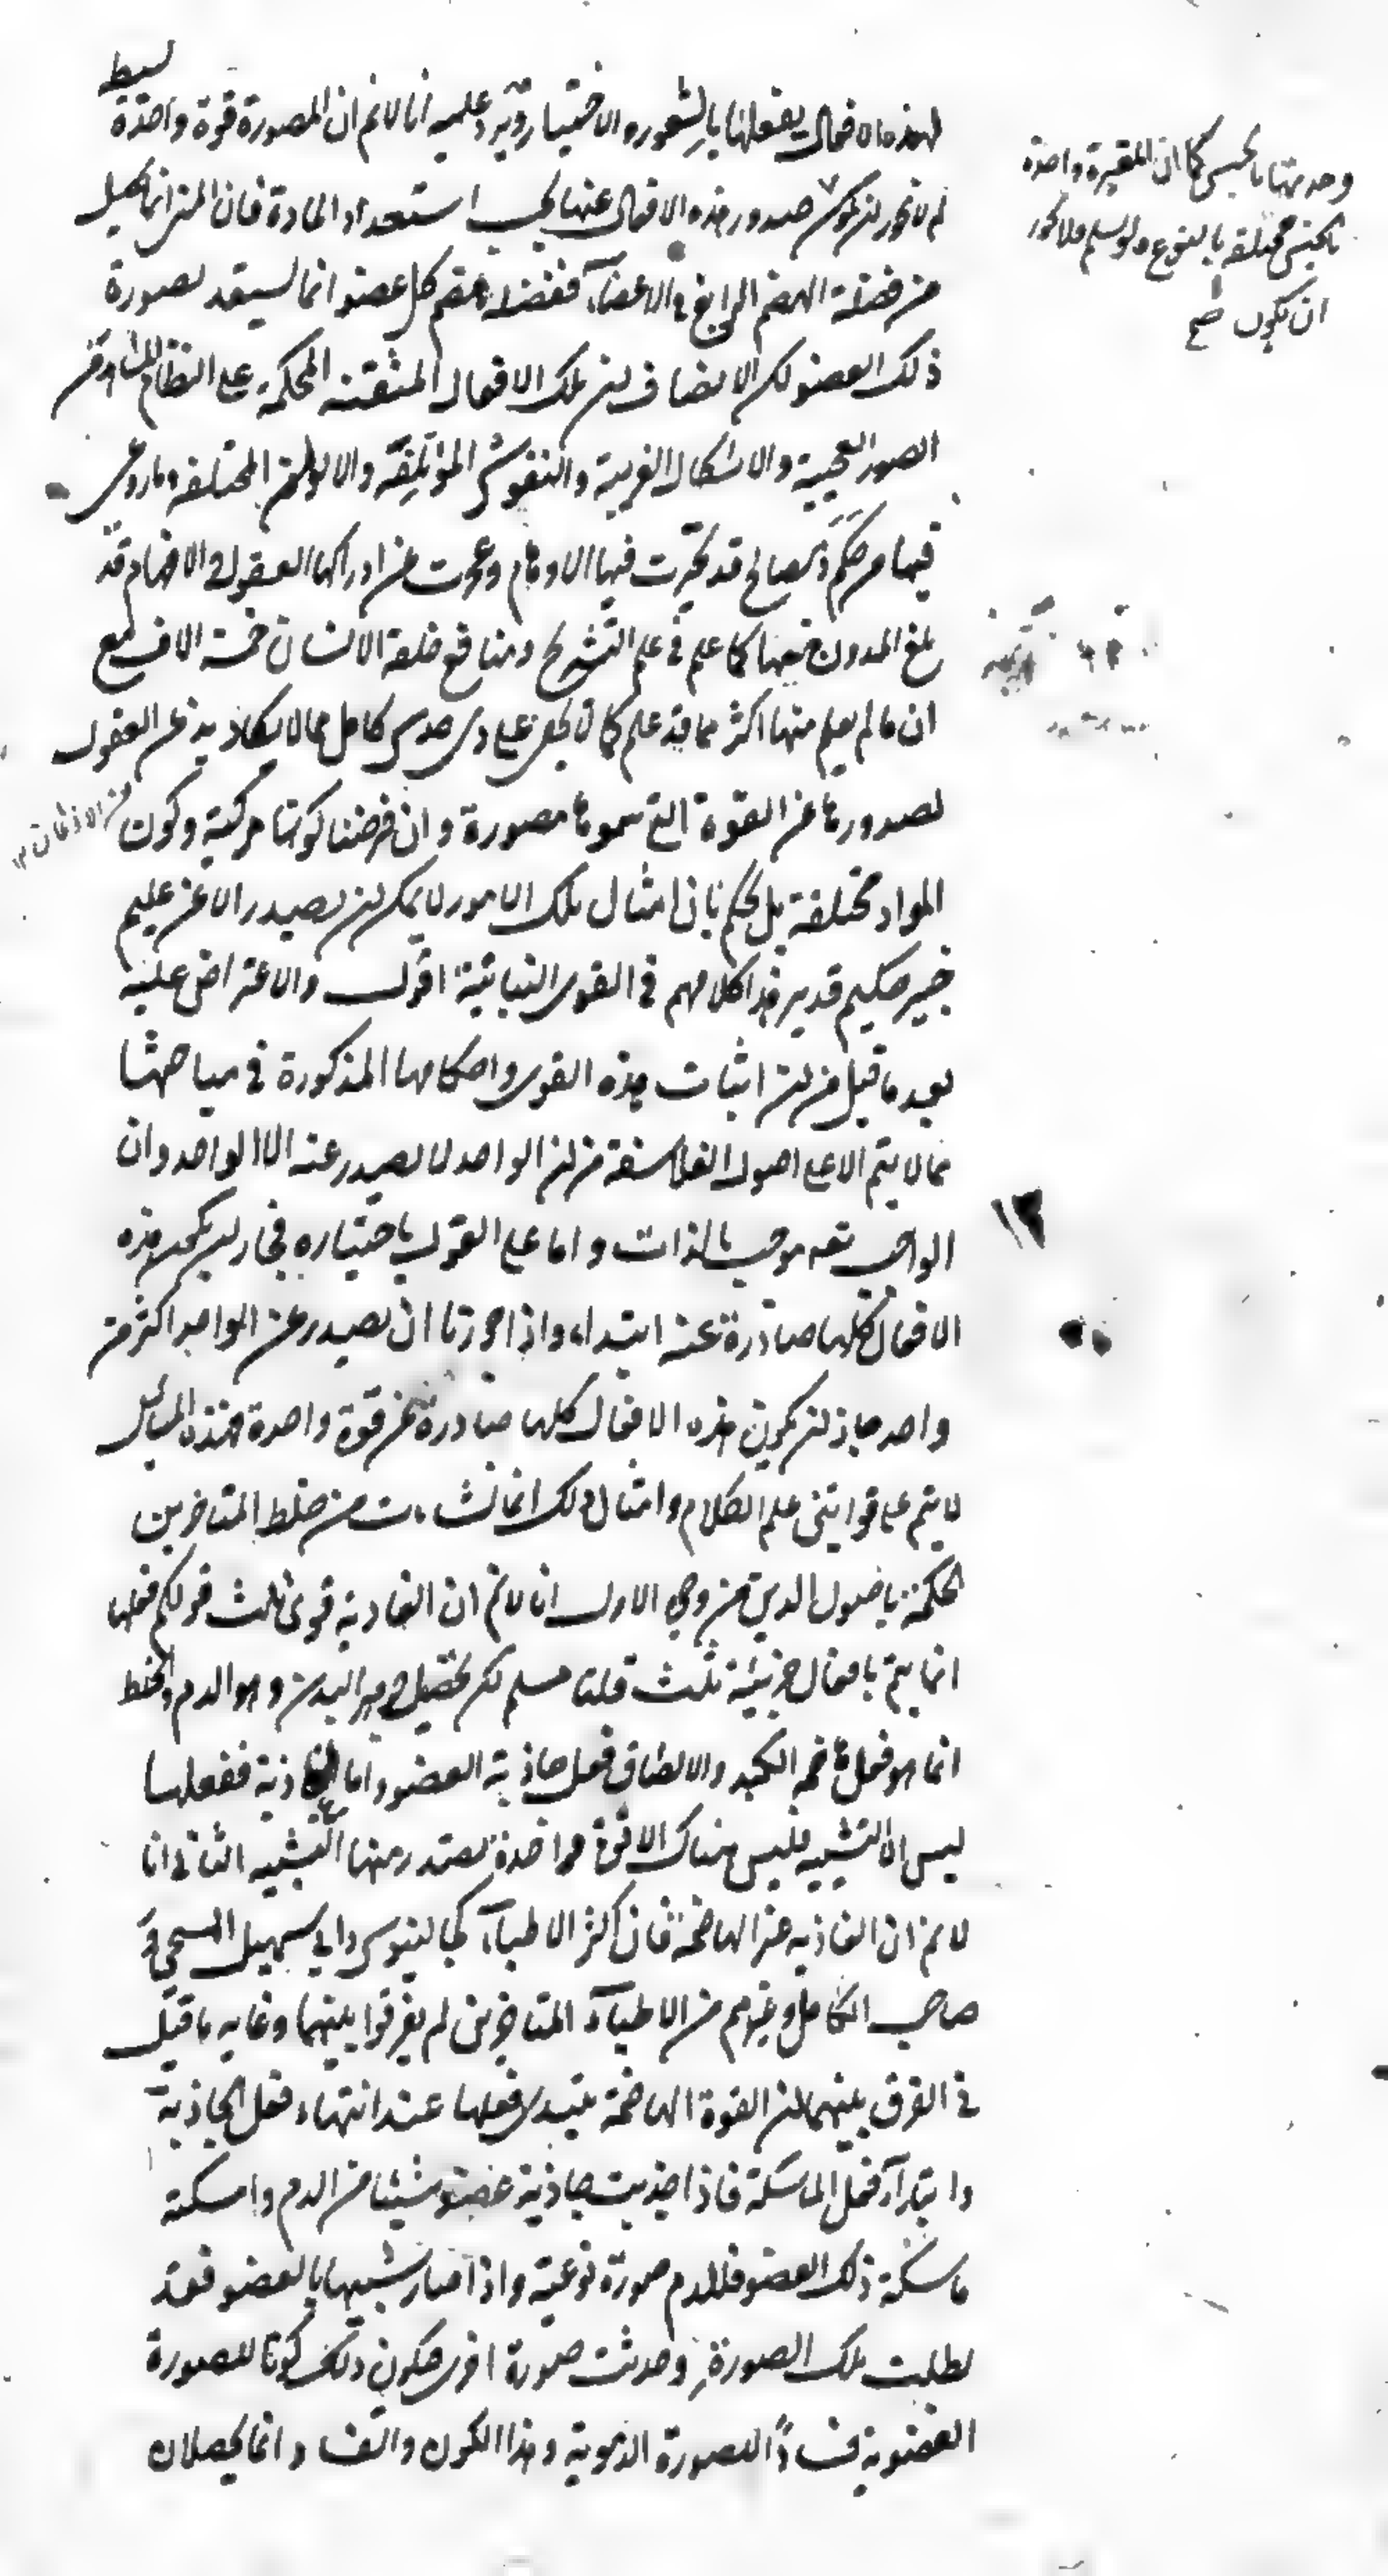 بسيط
لهذه الافعال يفعلها بالشعور والاختيار ويرد عليه انا لانم ان المصورة قوة واحدة
لم لا يجوز ان يكون صدور هذه الافعال عنها بحسب استعداد المادة فان المنى انما يحصل
من فضلة الهضم الرابع فى الاعضاء ففضلة هضم كل عضو انما يستعد لصورة
ذلك العضو لكن الانصاف ان تلك الافعال المتقنة المحكمة على النظام المشاهد من
الصور العجيبة والاشكال الغريبة والنقوش المؤتلفة والالوان المختلفة وما روعى
فيها من حكم ومصالح قد تحيرت فيها الاوهام وعجزت عن ادراكها العقول والافهام قد
بلغ المدون منها كما علم فى علم التشريح ومنافع خلقة الانسان خمسة الاف مع
ان ما لم يعلم منها اكثر مما قد علم كما لا يخفى على ذى حدس كامل مما لا يكاد يذعن العقول
لصدورها عن القوة التى سموها مصورة وان فرضنا كونها مركبة وكون
المواد مختلفة بل يحكم بان امثال تلك الامور لا يمكن ان يصدر الا عن عليم
خبير حكيم قدير هذا كلامهم فى القوى النباتية اقول والاعتراض عليه
بعد ما قيل من ان اثبات هذه القوى واحكامها المذكورة فى مباحثها
مما لا يتم الا على اصول الفلاسفة من ان الواحد لا يصدر عنه الا الواحد وان
الواجب تعه موجب بالذات واما على القول باختياره فجاز ان يكون هذه
الافعال كلها صادرة عنه ابتداء واذا جوزنا ان يصدر عن الواحد اكثر من
واحد جاز ان يكون هذه الافعال كلها صادرة عن قوة واحدة فهذه المسائل
لا يتم على قوانين علم الكلام وامثال ذلك انما نشات من خلط المتاخرين
الحكمة باصول الدين من وجوه الاول انا لانم ان الغاذية قوى ثلث قولكم فعلها
انما يتم بافعال جزئية ثلث قلنا مسلم لكن تحصيل جوهر البدن وهو الدم والخلط
انما هو فعل هاضمة الكبد والالصاق فعل جاذبة العضو واما الغاذية ففعلها
ليس الا التشبيه فليس هناك الا قوة واحدة يصدر منها التشبيه الثانى انا
لانم ان الغاذية غير الهاضمة فان اكثر الاطباء كجالينوس وابى سهيل المسيحى و
صاحب الكامل وغيرهم من الاطباء المتاخرين لم يفرقوا بينهما وغاية ما قيل
فى الفرق بينهما ان القوة الهاضمة يبتدى فعلها عند انتهاء فعل الجاذبة
وابتداء فعل الماسكة فاذا جذبت جاذبة عضو شيئا من الدم وامسكته
ماسكة ذلك العضو فللدم صورة نوعية واذا صار شبيها بالعضو فقد
بطلت تلك الصورة وحدثت صورة اخرى فيكون ذلك كونا للصورة
العضوية فسادا للصورة الدموية وهذا الكون والفساد انما يحصلان
وحدتها بالجنس كما ان المغيرة واحدة
بالجنس مختلفة بالنوع ولو سلم فلا يجوز
ان يكون صح
من الاذهان
١٢